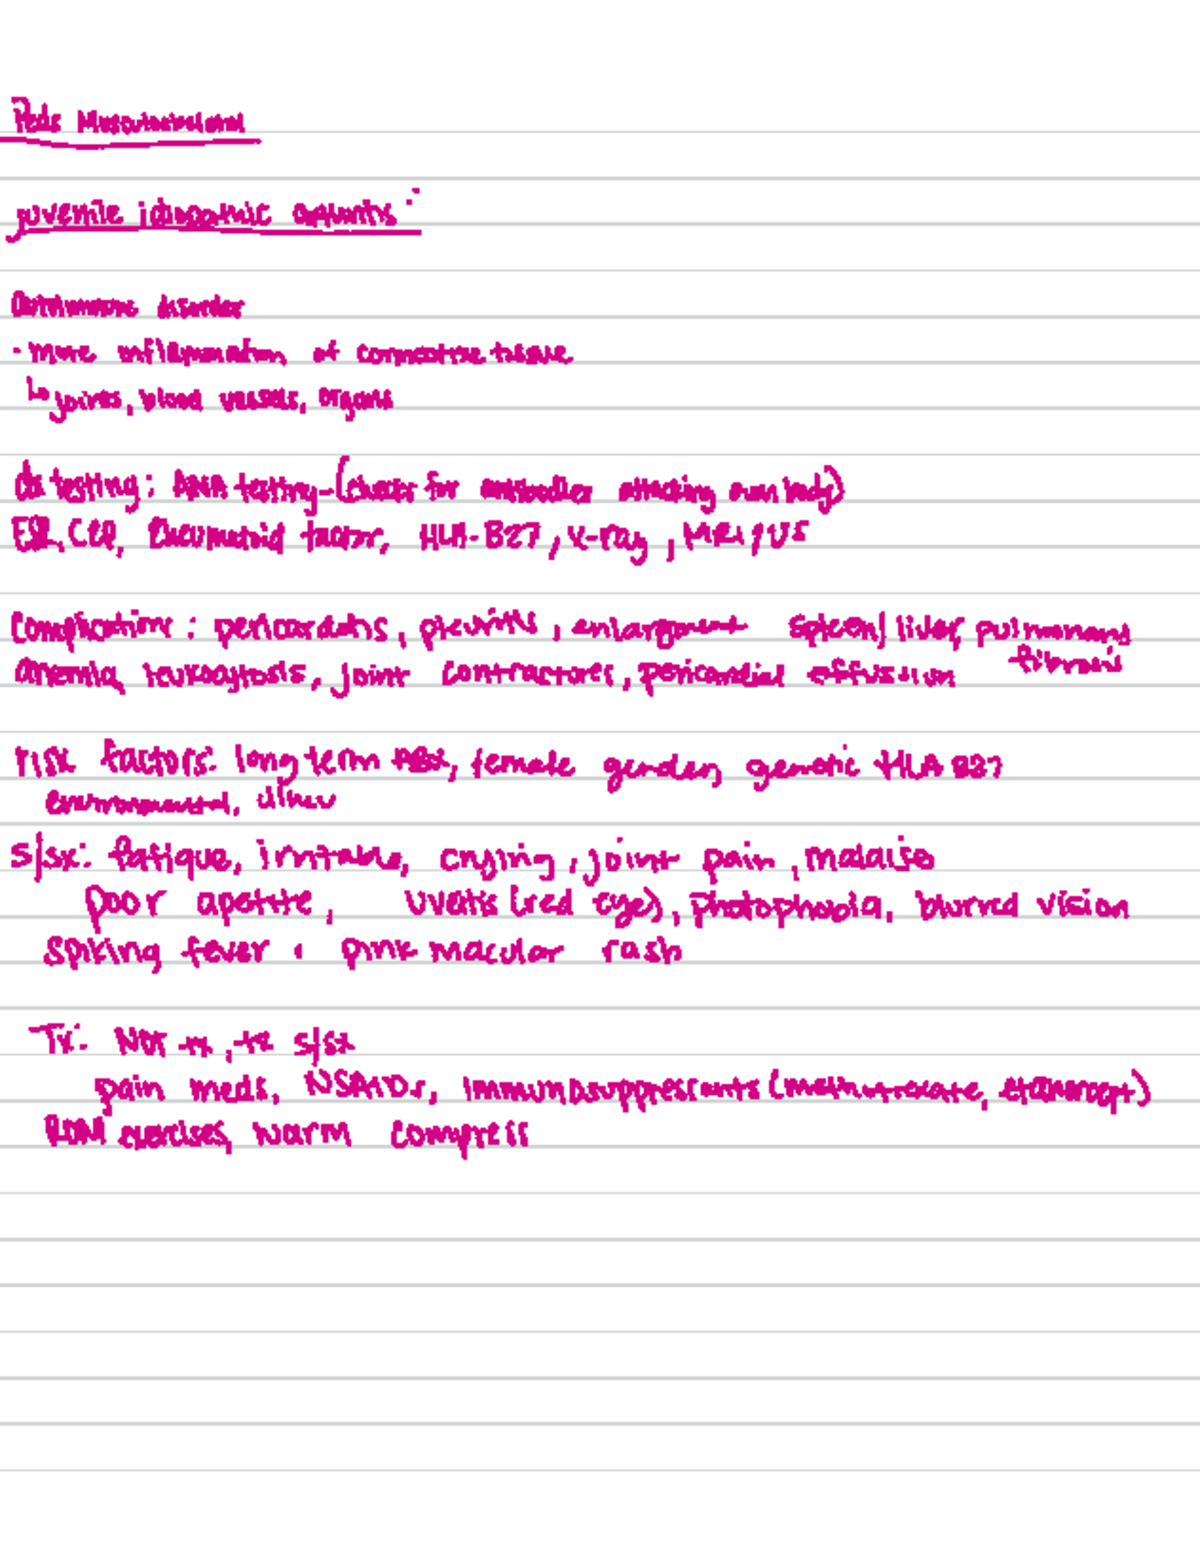 Peds Musculoskeletal
juvenile idiopathic arthritis:
Autoimmune disorder
- more inflammation of connective tissue
↳ joints, blood vessels, organs
dx testing: ANA testing-(checks for antibodies attacking own body)
ESR, CRP, Rheumatoid factor, HLA-B27, X-ray, MRI, US
Complication: pericarditis, pleuritis, enlargment spleen/liver, pulmonary
fibrosis
anemia, leukocytosis, joint contractures, pericardial effusion
risk factors: long term ABX, female gender, genetic HLA B27
environmental,
s/sx: fatigue, irritable, crying, joint pain, malaise
poor apetite, uveitis (red eye), photophobia, blurred vision
spiking fever, pink macular rash
Tx: Not tx, tx s/sx
pain meds, NSAIDs, immunosuppressants (methotrexate, etanercept)
ROM exercises, warm compress